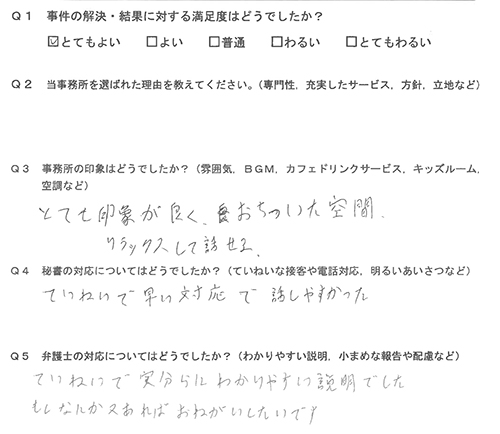 Q1 事件の解決・結果に対する満足度はどうでしたか?
☑とてもよい □よい □普通 □わるい □とてもわるい
Q2 当事務所を選ばれた理由を教えてください。(専門性,充実したサービス,方針,立地など)
Q3 事務所の印象はどうでしたか?(雰囲気,BGM,カフェドリンクサービス,キッズルーム,
空調など)
とても印象が良く、おちついた空間.
リラックスして話せる.
Q4 秘書の対応についてはどうでしたか?(ていねいな接客や電話対応,明るいあいさつなど)
ていねいで早い対応で 話しやすかった
Q5 弁護士の対応についてはどうでしたか?(わかりやすい説明,小まめな報告や配慮など)
ていねいで わかりやすい説明でした
もしなにか又あれば おねがいしたいです